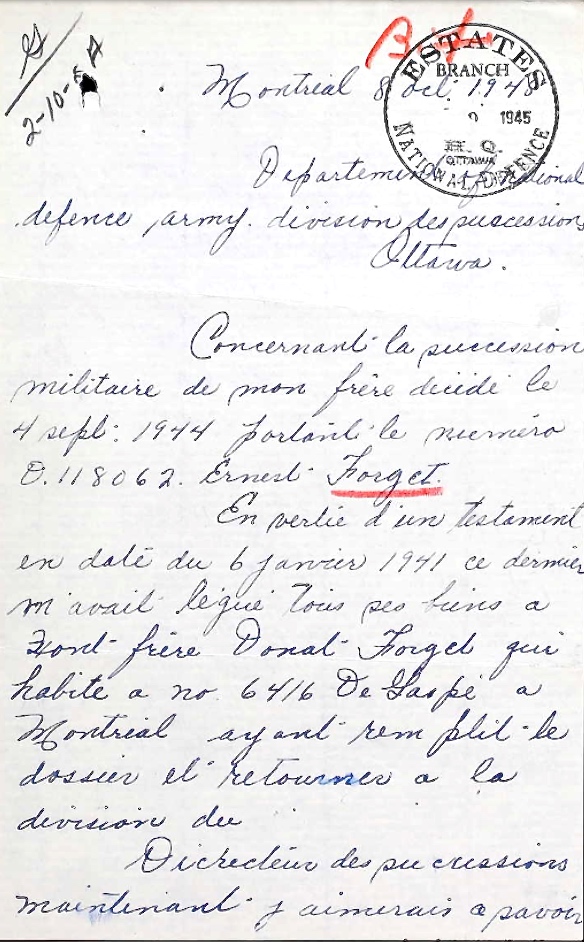 2-10-
Montréal 8 oct. 1945
ESTATES
BRANCH
1945
H. Q.
OTTAWA
NATIONAL DEFENCE
Departement of National
defence army. division des successions
Ottawa.
Concernant la succession
militaire de mon frère décédé le
4 sept. 1944 portant le numéro
D.118062. Ernest Forget.
En vertie d'un testament
en daté du 6 janvier 1941 ce dernier
m'avait légué tous ses biens a
frère Donat Forget qui
habite a no. 6416 De Gaspé a
Montréal ayant remplit le
dossier et retourner a la
division du
Dicrecteur des successions
maintenant j'aimerais a savoir